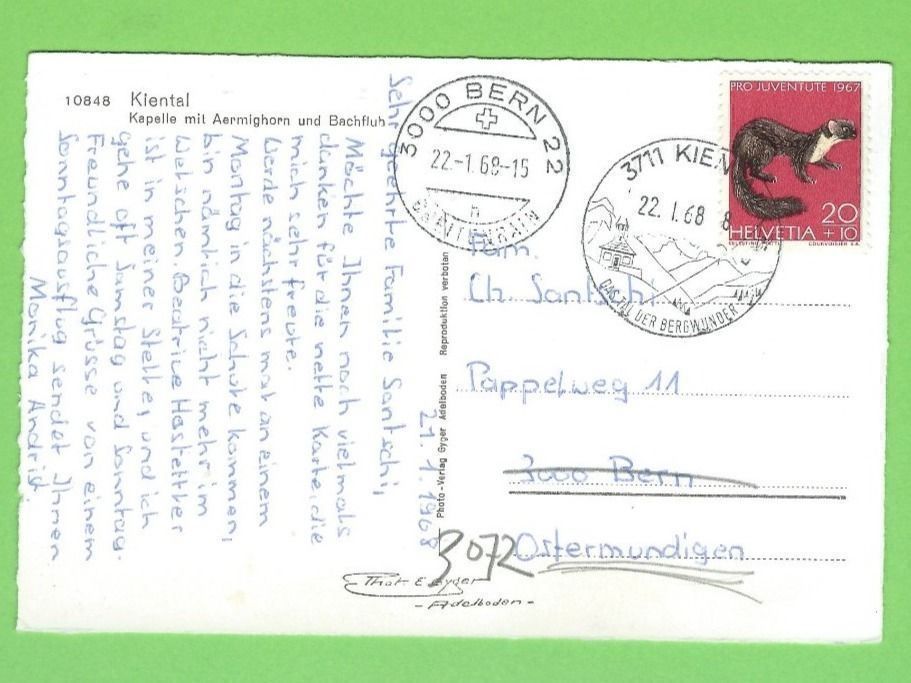 10848 Kiental
Kapelle mit Aermighorn und Bachfluh
Sehr geehrte Familie Santschi,
Möchte Ihnen noch vielmals
danken für die nette Karte, die
mich sehr freute.
Werde nächstens mal an einem
Montag in die Schule kommen,
bin nämlich nicht mehr im
Welschen. Beatrice Hostettler
ist in meiner Stelle, und ich
gehe oft Samstag und Sonntag.
Freundliche Grüsse von einem
Sonntagsausflug sendet Ihnen
Monika Andrist.
21.1.1968
Photo-Verlag Gyger Adelboden Reproduktion verboten
Phot E Gyger
- Adelboden -
3000 BERN 22
22.-1.68-15
h
3711 KIEN
22.I.68 8
DAS TAL DER BERGWUNDER
PRO JUVENTUTE 1967
20
HELVETIA +10
COURVOISIER S.A.
Fam.
Ch. Santschi
Pappelweg 11
3000 Bern
3072 Ostermundigen